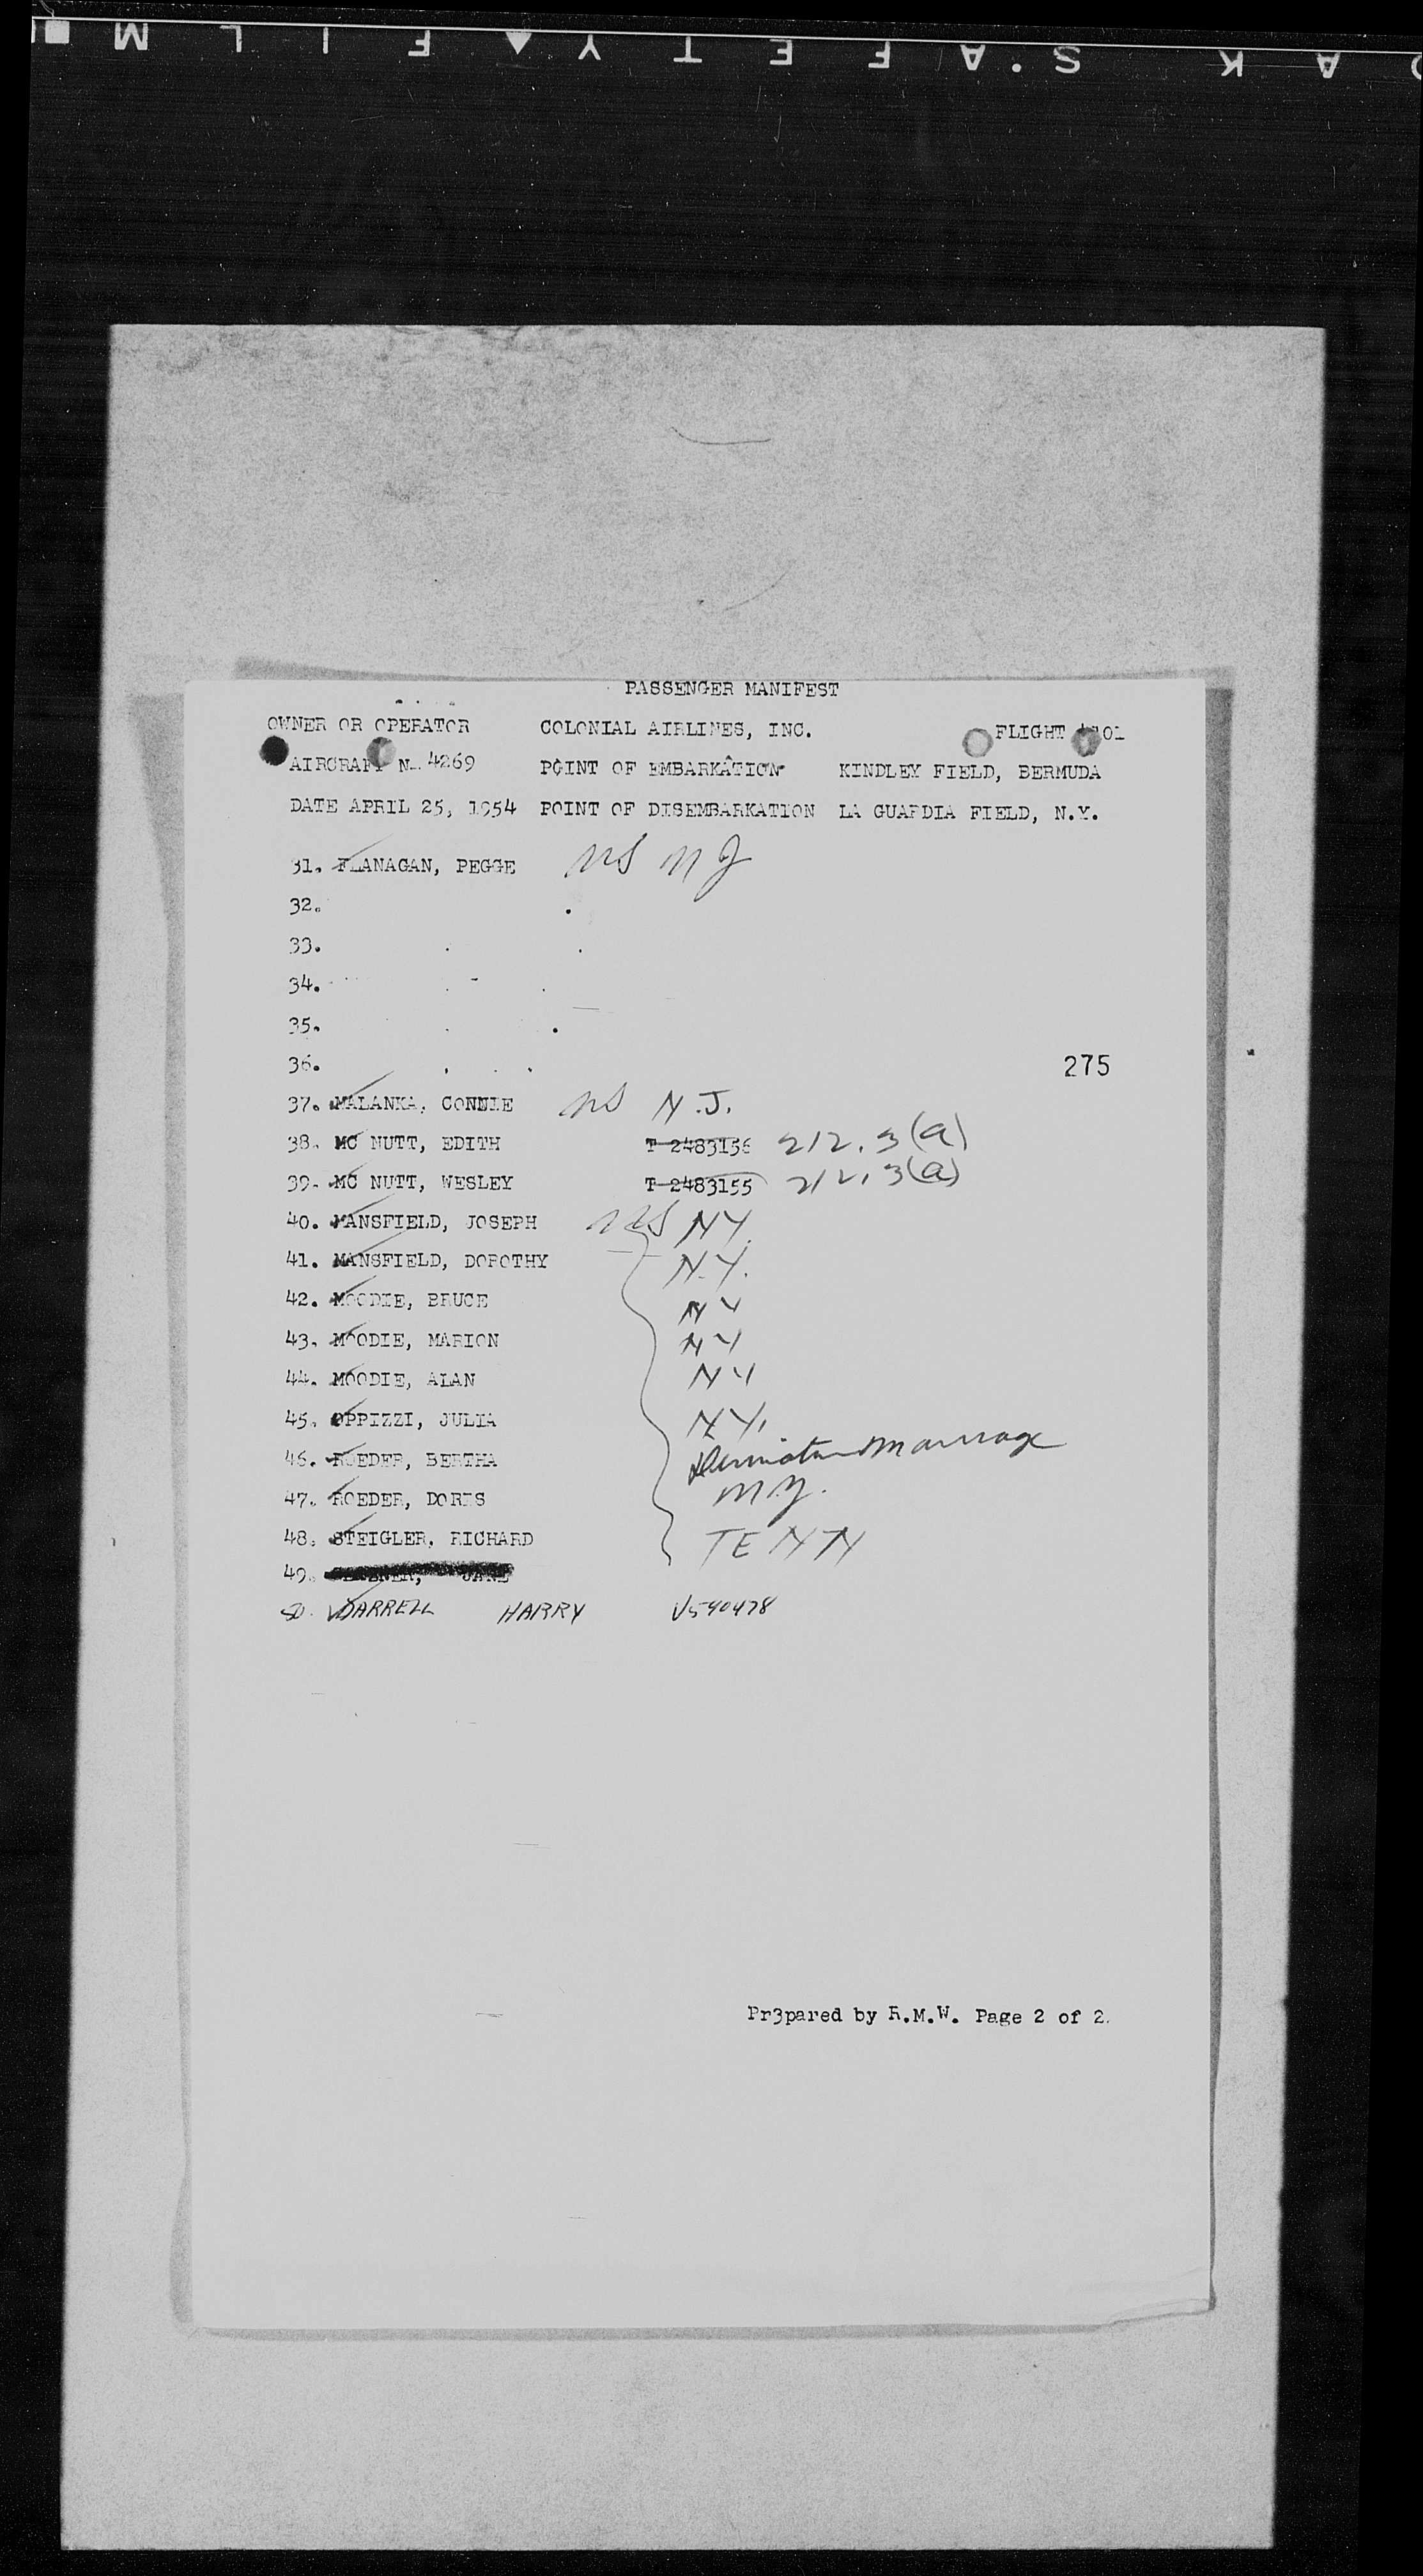 K A S.A F E T Y ▲ F I L M ■
PASSENGER MANIFEST
OWNER OR OPERATOR COLONIAL AIRLINES, INC. FLIGHT
AIRCRAFT N 4269 POINT OF EMBARKATION KINDLEY FIELD, BERMUDA
DATE APRIL 25, 1954 POINT OF DISEMBARKATION LA GUARDIA FIELD, N.Y.
31. FLANAGAN, PEGGE NJ
32.
33.
34.
35.
36.
275
37. MALANKA, CONNIE N.J.
38. MC NUTT, EDITH T 2483156 212.3(a)
39. MC NUTT, WESLEY T 2483155 212.3(a)
40. MANSFIELD, JOSEPH US NY.
41. MANSFIELD, DOROTHY N.Y.
42. MOODIE, BRUCE NY
43. MOODIE, MARION NY
44. MOODIE, ALAN NY
45. OPPIZZI, JULIA N.Y.
46. ROEDER, BERTHA Marriage
47. ROEDER, DORIS N.Y.
48. STEIGLER, RICHARD TENN
49. JANE
50. DARRELL HARRY V590478
Pr3pared by R.M.W. Page 2 of 2.